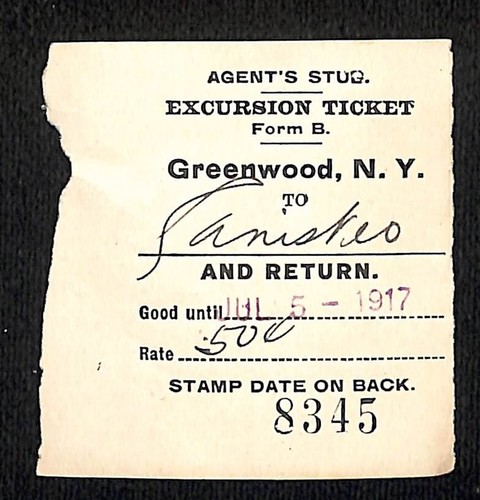 AGENT'S STUB.
EXCURSION TICKET
Form B.
Greenwood, N. Y.
TO
Canisteo
AND RETURN.
Good until JUL 5 - 1917
Rate .50¢
STAMP DATE ON BACK.
8345